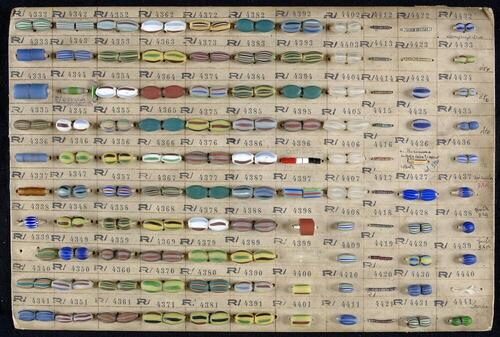 R/ 4332 R/ 4342 R/ 4352 R/ 4362 R/ 4372 R/ 4382 R/ 4392 R/ 4402 R/ 4412 R/ 4422 R/ 4432
4333 R/ 4343 R/ 4353 R/ 4363 R/ 4373 R/ 4383 R/ 4393 R/ 4403 R/ 4413 R/ 4423 R/ 4433
4334 R/ 4344 R/ 4354 R/ 4364 R/ 4374 R/ 4384 R/ 4394 R/ 4404 R/ 4414 R/ 4424 R/ 4434
4335 R/ 4345 R/ 4355 R/ 4365 R/ 4375 R/ 4385 R/ 4395 R/ 4405 R/ 4415 R/ 4425 R/ 4435
4336 R/ 4346 R/ 4356 R/ 4366 R/ 4376 R/ 4386 R/ 4396 R/ 4406 R/ 4416 R/ 4436
4337 R/ 4347 R/ 4357 R/ 4367 R/ 4377 R/ 4387 R/ 4397 R/ 4407 R/ 4417 R/ 4427 R/ 4437
4338 R/ 4348 R/ 4358 R/ 4368 R/ 4378 R/ 4388 R/ 4398 R/ 4408 R/ 4418 R/ 4428 R/ 4438
4339 R/ 4349 R/ 4359 R/ 4369 R/ 4379 R/ 4389 R/ 4399 R/ 4409 R/ 4419 R/ 4429 R/ 4439
4340 R/ 4350 R/ 4360 R/ 4370 R/ 4380 R/ 4390 R/ 4410 R/ 4420 R/ 4430 R/ 4440
4341 R/ 4351 R/ 4361 R/ 4371 R/ 4381 R/ 4391 R/ 4401 R/ 4411 R/ 4421 R/ 4431 R/ 4441